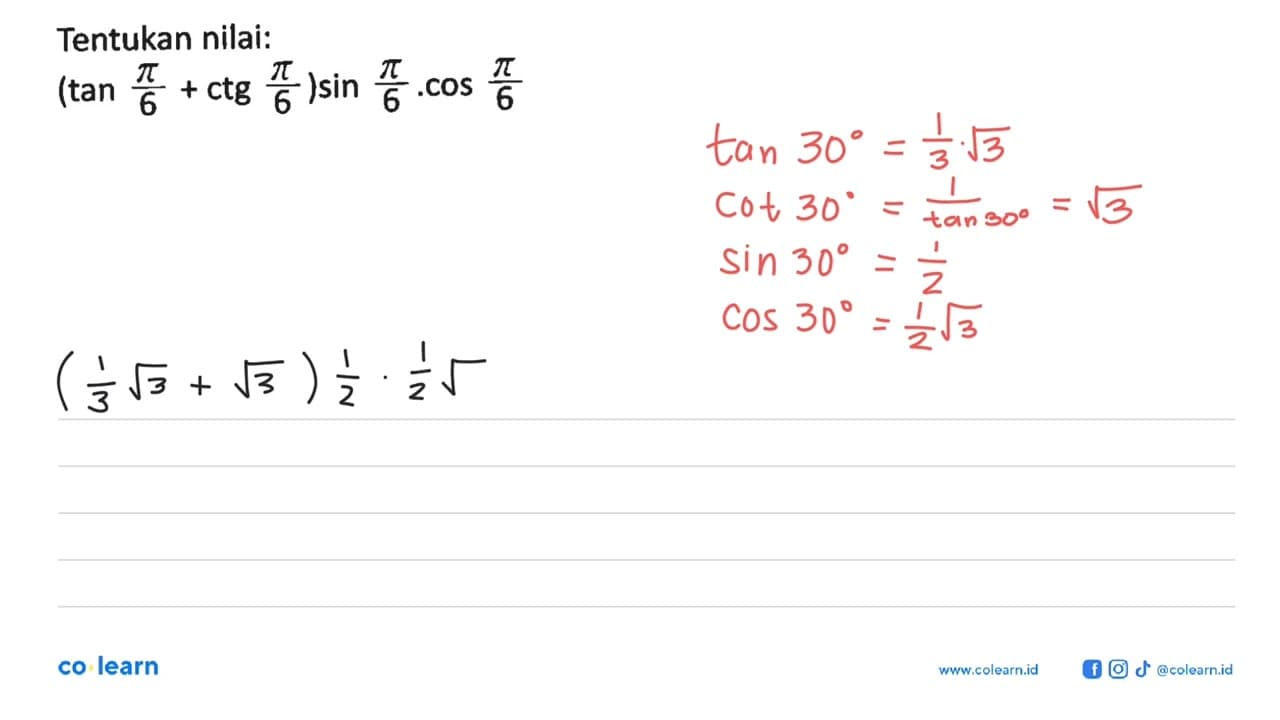 Tentukan nilai:
(tan π/6 + ctg π/6 )sin π/6 .cos π/6
tan 30° = 1/3 . √3
Cot 30° = 1/tan 30° = √3
sin 30° = 1/2
Cos 30° = 1/2 √3
(1/3 √3 + √3 ) 1/2 . 1/2 √
co learn
www.colearn.id
@colearn.id